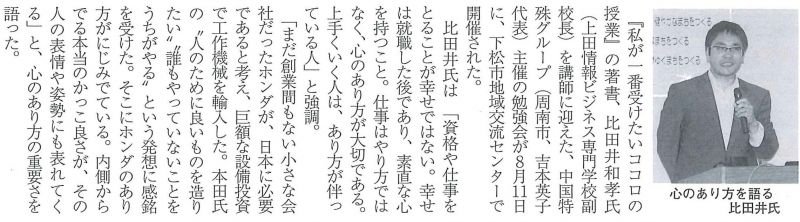 『私が一番受けたいココロの
授業』の著書、比田井和孝氏
（上田情報ビジネス専門学校副
校長）を講師に迎えた、中国特
殊グループ（周南市、吉本英子
代表）主催の勉強会が８月11日
に、下松市地域交流センターで
開催された。
比田井氏は「資格や仕事を
とることが幸せではない。幸せ
は就職した後であり、素直な心
を持つこと。仕事はやり方では
なく、心のあり方が大切である。
上手くいく人は、あり方が伴っ
ている人」と強調。
「まだ創業間もない小さな会
社だったホンダが、日本に必要
であると考え、巨額な設備投資
で工作機械を輸入した。本田氏
の〝人のために良いものを造り
たい〟〝誰もやっていないことを
うちがやる〟という発想に感銘
を受けた。そこにホンダのあり
方がにじみでている。内側から
でる本当のかっこ良さが、その
人の表情や姿勢にも表れてく
る」と、心のあり方の重要さを
語った。
まちをつくる
まちをつくる
まちをつくる
心のあり方を語る
比田井氏